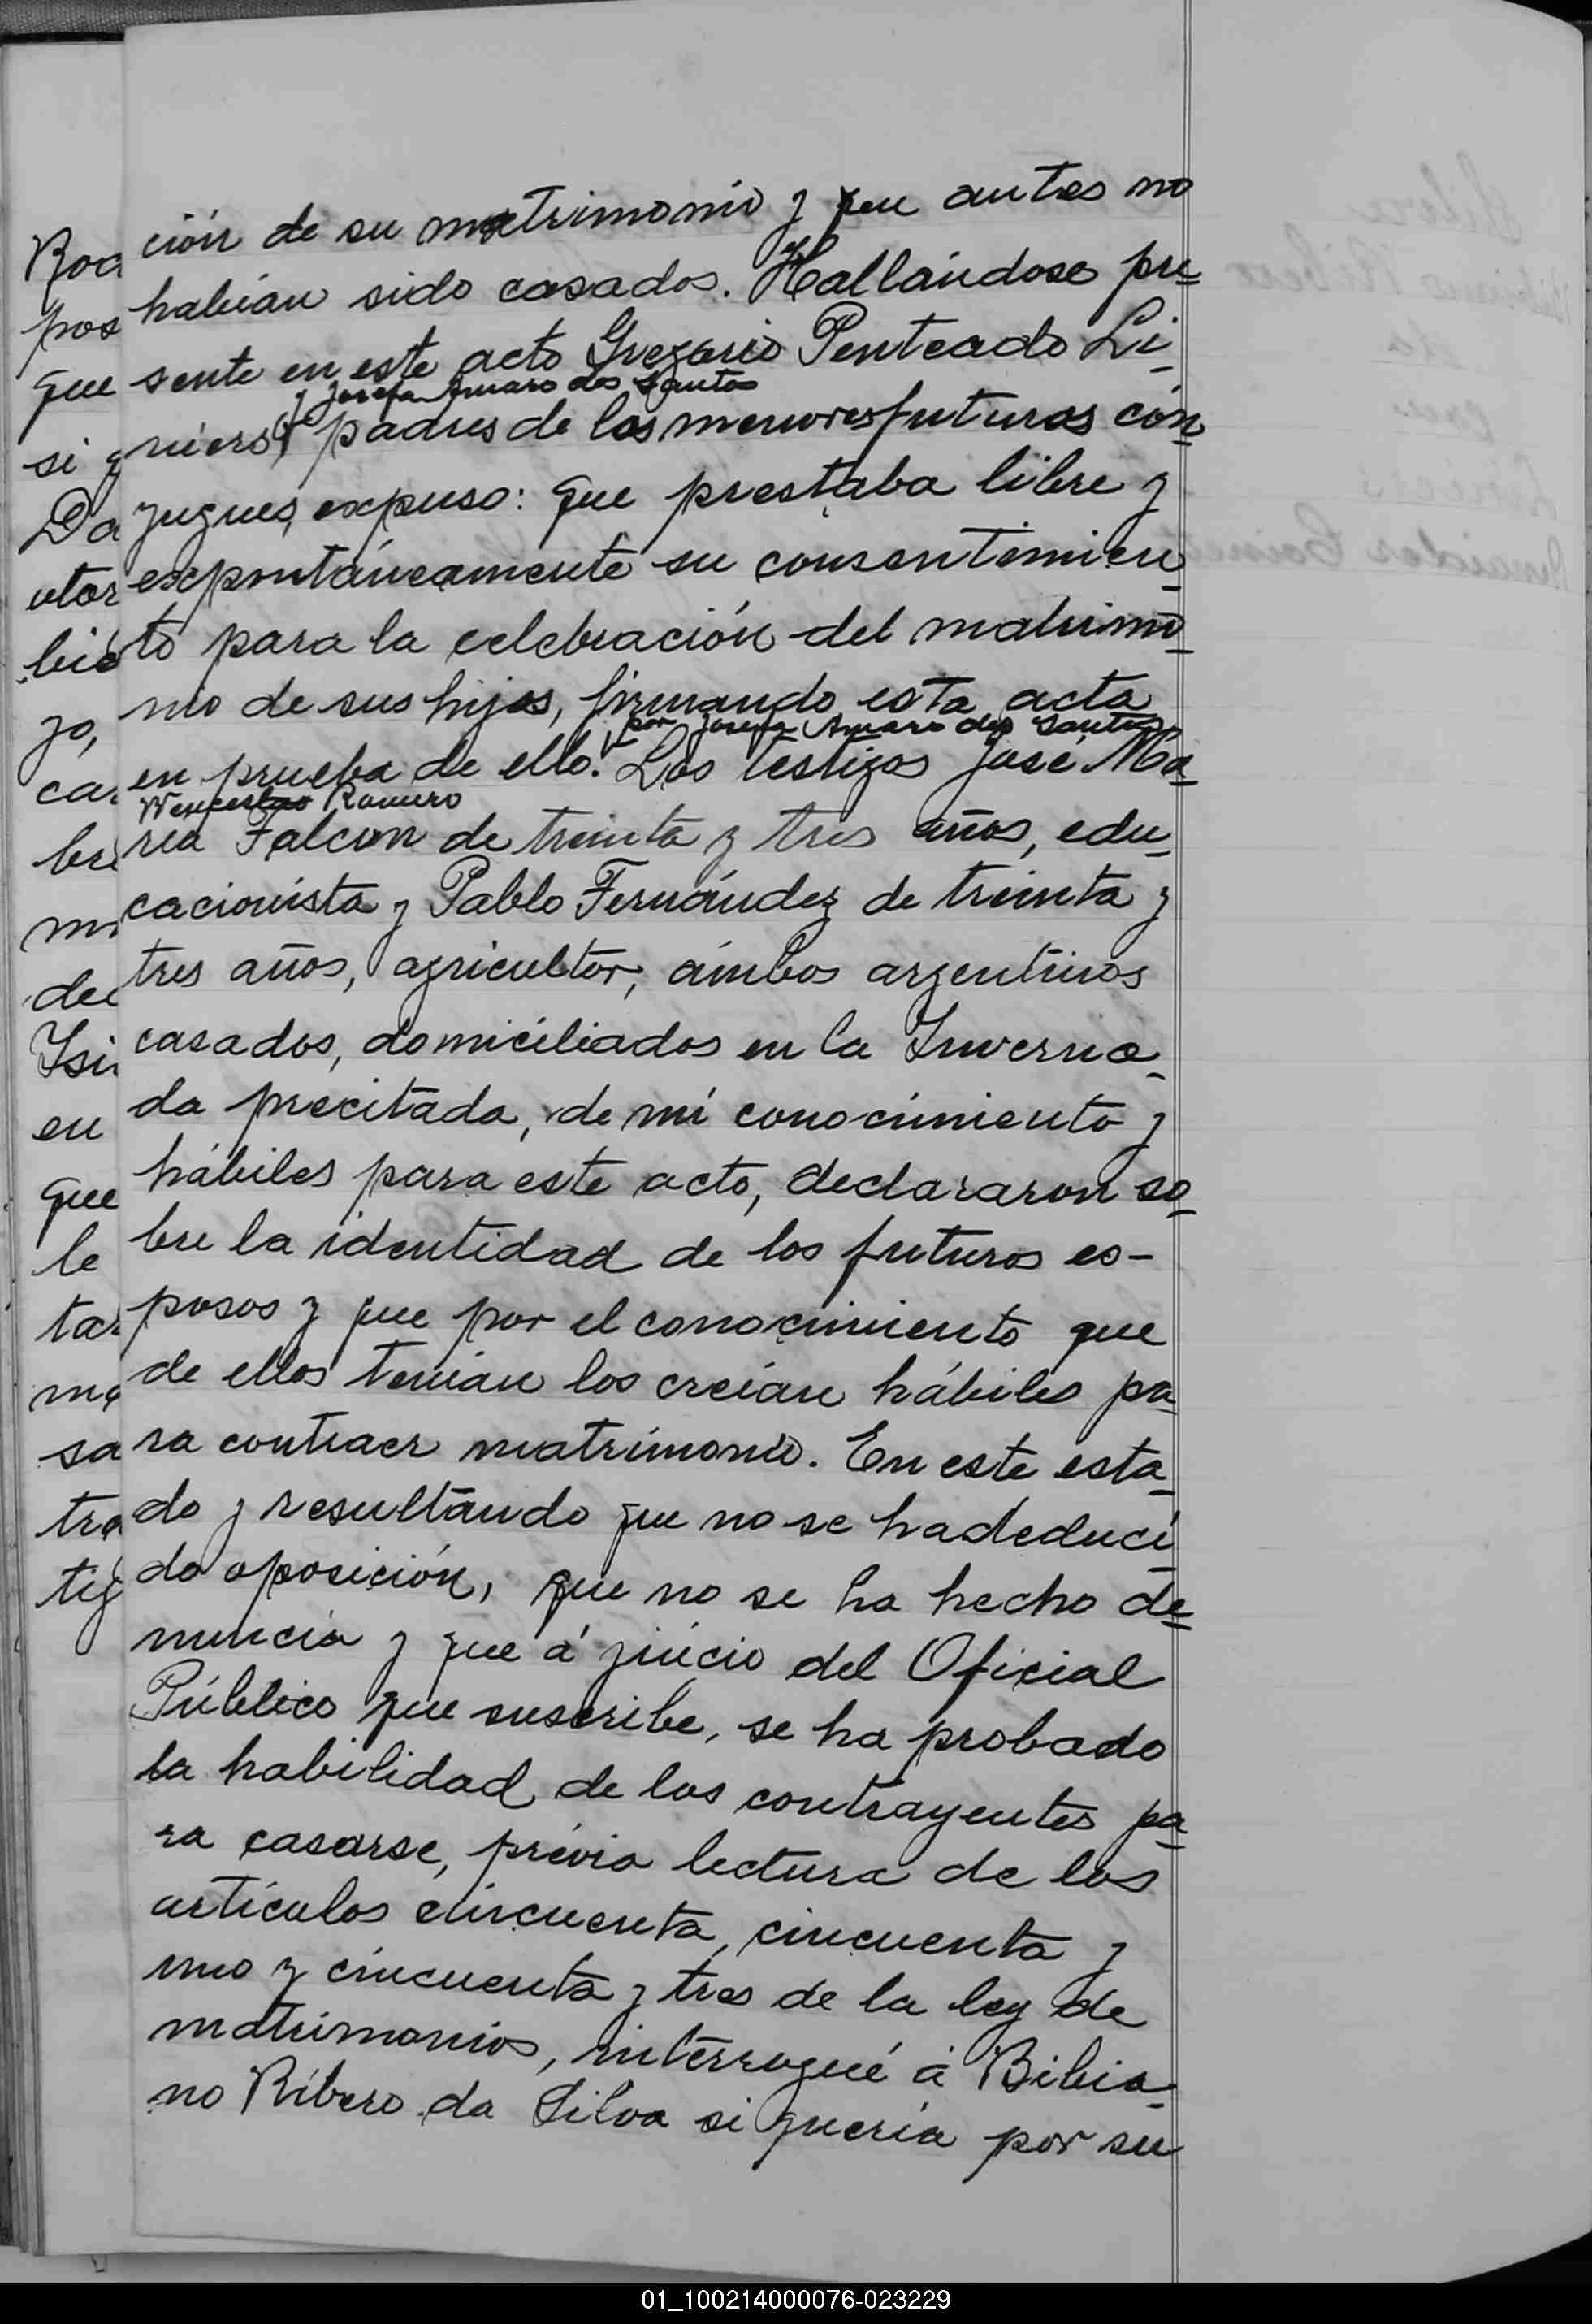 ción de su matrimonio y que antes no
habían sido casados. Hallándose pre-
sente en este acto Gregorio Penteado Li-
y Josefa Amaro dos Santos
niers, padres de los menores futuros cón-
yugues, expuso: que prestaba libre y
expontáneamente su consentimien-
to para la celebración del matrimo-
nio de sus hijos, firmando esta acta
por Josefa Amaro dos Santos
en prueba de ello. Los testigos José Ma-
Wenceslao Romero
ria Falcon de treinta y tres años, edu-
cacionista y Pablo Fernández de treinta y
tres años, agricultor, ámbos argentinos
casados, domiciliados en la Inverna-
da precitada, de mi conocimiento y
hábiles para este acto, declararon so-
bre la identidad de los futuros es-
posos y que por el conocimiento que
de ellos tenían los creían hábiles pa-
ra contraer matrimonio. En este esta-
do y resultando que no se ha deduci-
do oposición, que no se ha hecho de-
nuncia y que á juicio del Oficial
Público que suscribe, se ha probado
la habilidad de los contrayentes pa-
ra casarse, prévia lectura de los
artículos cincuenta, cincuenta y
uno y cincuenta y tres de la ley de
matrimonios, interrogué á Bibia-
no Ribero da Silva si quería por su
Roa
pos
que
si y
Da
utor
bió
jo,
ca
bre
mi
dec
Isi
en
que
le
tar
ma
sa
tra
tig
01_100214000076-023229